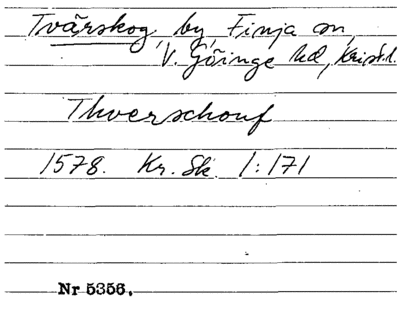 Tvärskog, by, Finja sn,
V. Göinge hd, Krist. l.
Thverschouf
1578. Kr. Sk. 1:171
Nr 5356.